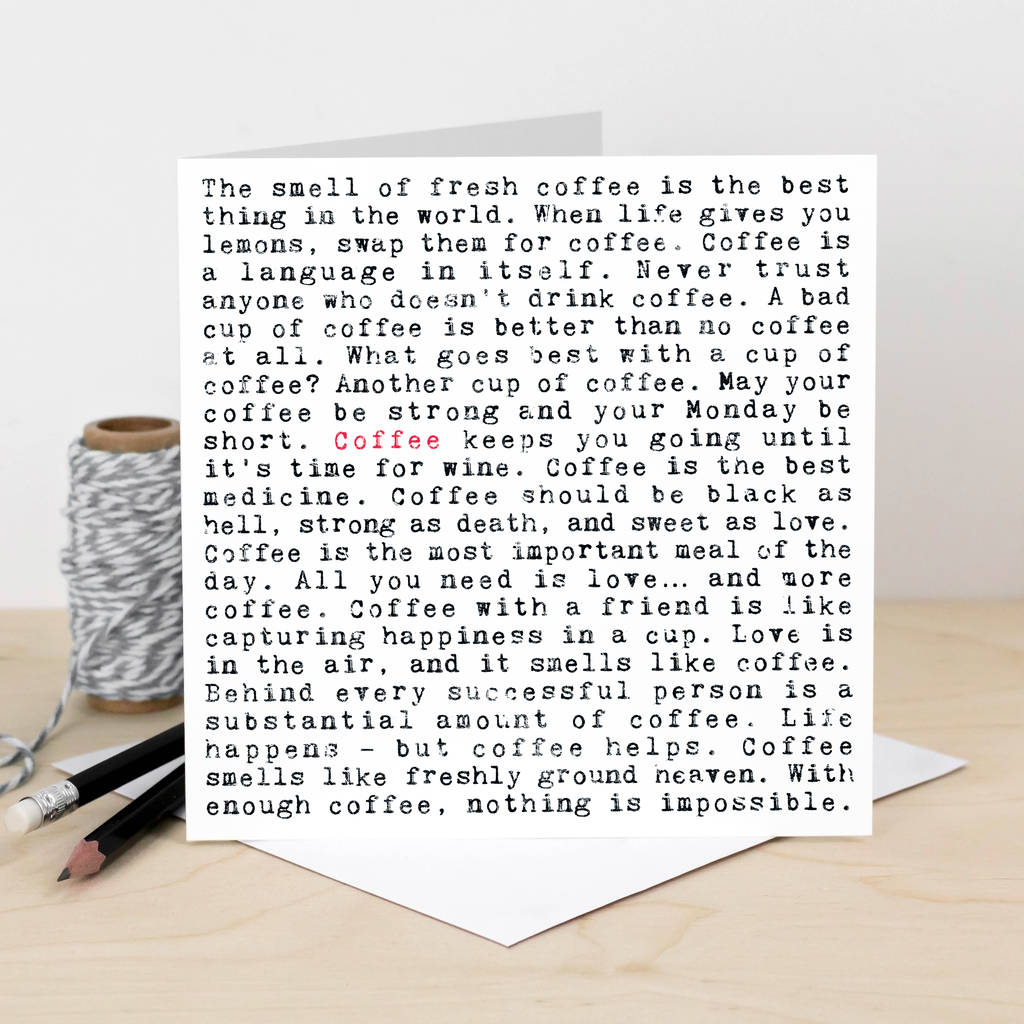 The smell of fresh coffee is the best
thing in the world. When life gives you
lemons, swap them for coffee. Coffee is
a language in itself. Never trust
anyone who doesn't drink coffee. A bad
cup of coffee is better than no coffee
at all. What goes best with a cup of
coffee? Another cup of coffee. May your
coffee be strong and your Monday be
short. Coffee keeps you going until
it's time for wine. Coffee is the best
medicine. Coffee should be black as
hell, strong as death, and sweet as love.
Coffee is the most important meal of the
day. All you need is love... and more
coffee. Coffee with a friend is like
capturing happiness in a cup. Love is
in the air, and it smells like coffee.
Behind every successful person is a
substantial amount of coffee. Life
happens - but coffee helps. Coffee
smells like freshly ground heaven. With
enough coffee, nothing is impossible.